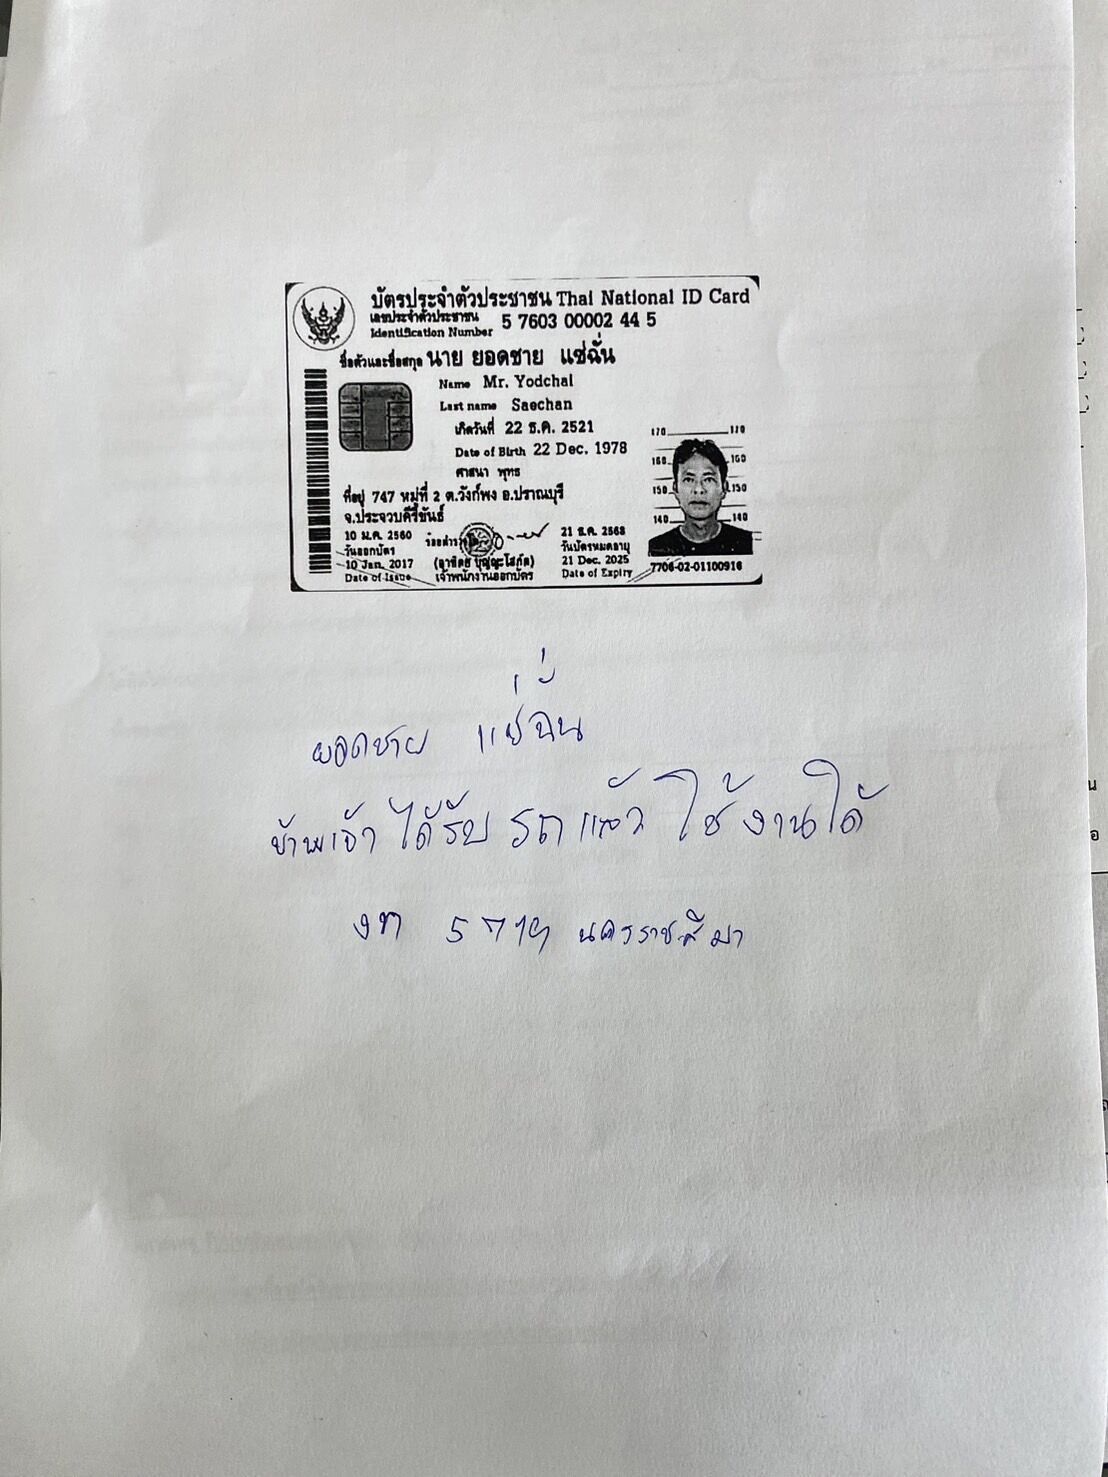 บัตรประจำตัวประชาชน Thai National ID Card
เลขประจำตัวประชาชน
Identification Number 5 7603 00002 44 5
ชื่อตัวและชื่อสกุล นาย ยอดชาย แซ่ฉั่น
Name Mr. Yodchai
Last name Saechan
เกิดวันที่ 22 ธ.ค. 2521
Date of Birth 22 Dec. 1978
ศาสนา พุทธ
ที่อยู่ 747 หมู่ที่ 2 ต.วังก์พง อ.ปราณบุรี
จ.ประจวบคีรีขันธ์
10 ม.ค. 2560
วันออกบัตร
10 Jan. 2017
Date of Issue
เจ้าพนักงานออกบัตร
21 ธ.ค. 2568
วันบัตรหมดอายุ
21 Dec. 2025
Date of Expiry
170 170
160 160
150 150
140 140
7706-02-01100916
ยอดชาย แซ่ฉั่น
ข้าพเจ้า ได้รับ รถแล้ว ใช้งานได้
5 นครราชสีมา